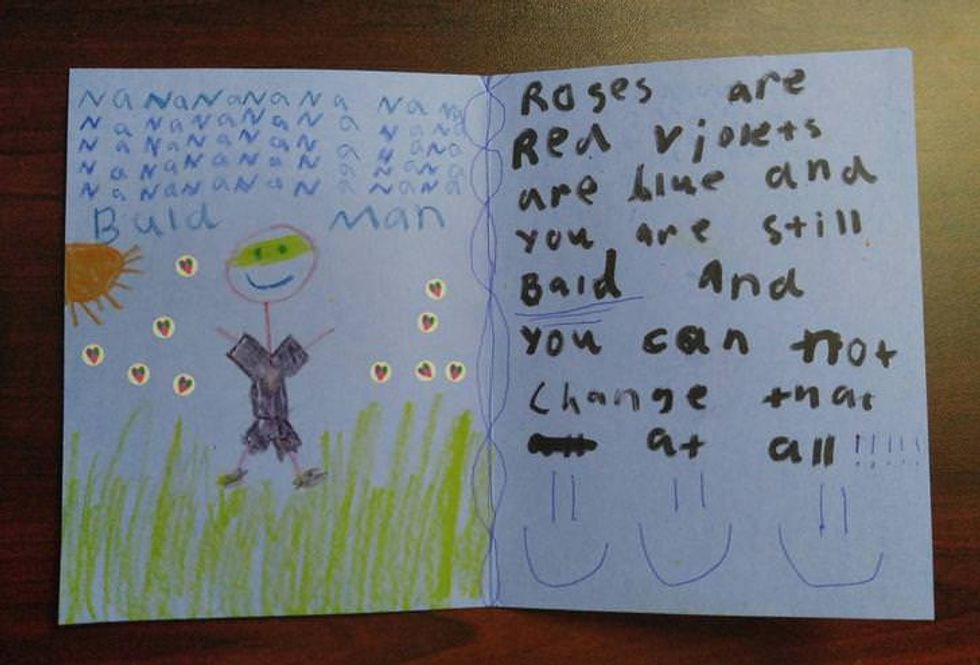 Na NaNaNaNa Na Na Na
Na NaNaNaNa Na NaNa
Na NaNaNaNa Na NaNa
Na NaNaNaNa Na NaNa
Na NaNaNaNa Na NaNa
Bald Man
Roses are
Red violets
are blue and
you are still
Bald And
you can not
change that
at all !!!!!